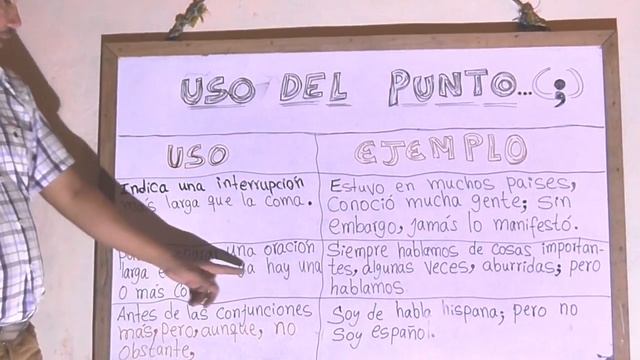 USO DEL PUNTO...(;)
USO
EJEMPLO
Indica una interrupción
más larga que la coma.
Estuvo en muchos países,
Conoció mucha gente; sin
embargo, jamás lo manifestó.
una oración
larga hay una
o más
Siempre hablamos de cosas importan-
tes, algunas veces, aburridas; pero
hablamos
Antes de las conjunciones
mas, pero, aunque, no
obstante,
Soy de habla hispana; pero no
Soy español.